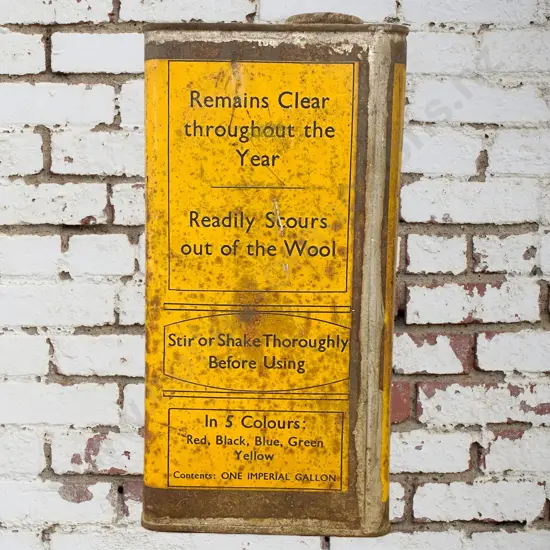 Remains Clear
throughout the
Year
Readily Scours
out of the Wool
Stir or Shake Thoroughly
Before Using
In 5 Colours:
Red, Black, Blue, Green
Yellow
Contents: ONE IMPERIAL GALLON